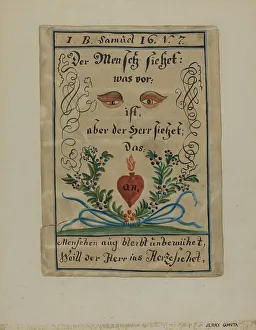 I B. Samuel 16. V. 7.
Der Mensch siehet:
was vor:
ist,
aber der Herr siehet;
Das
an,
Menschen aug bleibt unbemühet,
Weill der Herr ins Hertze siehet,
JERRY GUINTA